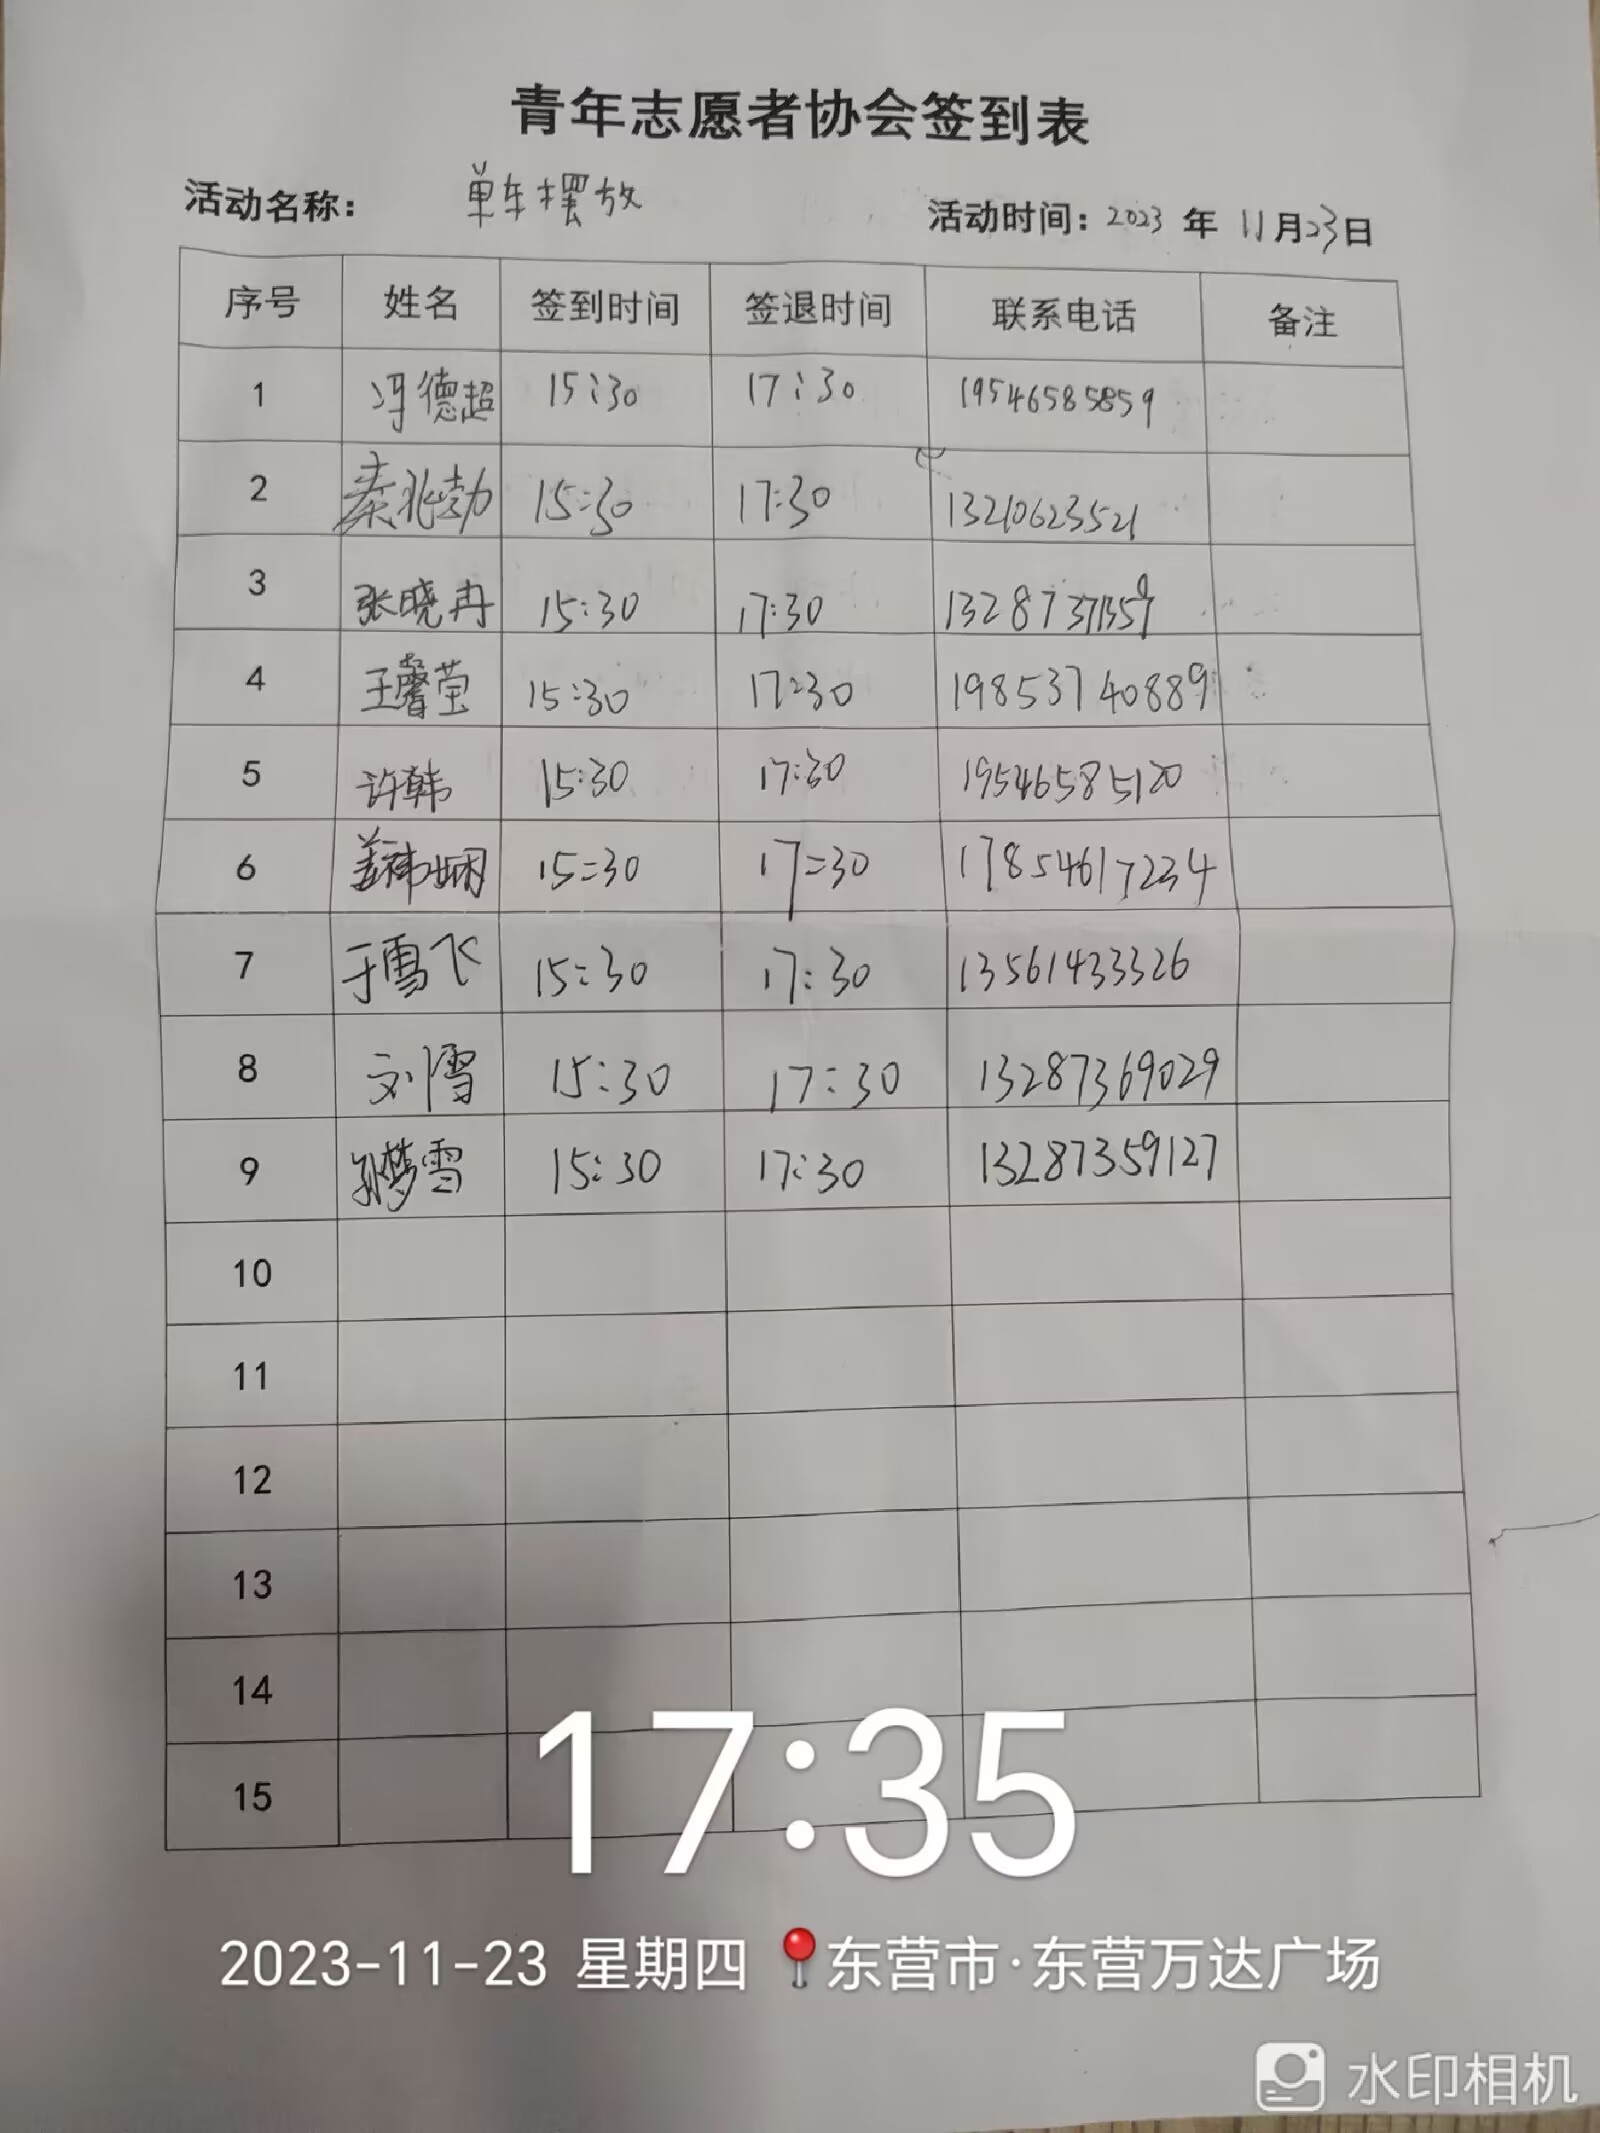 青年志愿者协会签到表
活动名称： 单车摆放 活动时间：2023 年 11月23日
序号 姓名 签到时间 签退时间 联系电话 备注
1 冯德超 15:30 17:30 19546585859
2 秦兆勃 15:30 17:30 13210623521
3 张晓冉 15:30 17:30 13287371359
4 王馨莹 15:30 17:30 19853740889
5 许韩 15:30 17:30 19546585120
6 15:30 17:30 17854617234
7 于雪飞 15:30 17:30 13561433326
8 刘雪 15:30 17:30 13287369029
9 孙梦雪 15:30 17:30 13287359127
10
11
12
13
14
15
17:35
2023-11-23 星期四 东营市·东营万达广场
水印相机